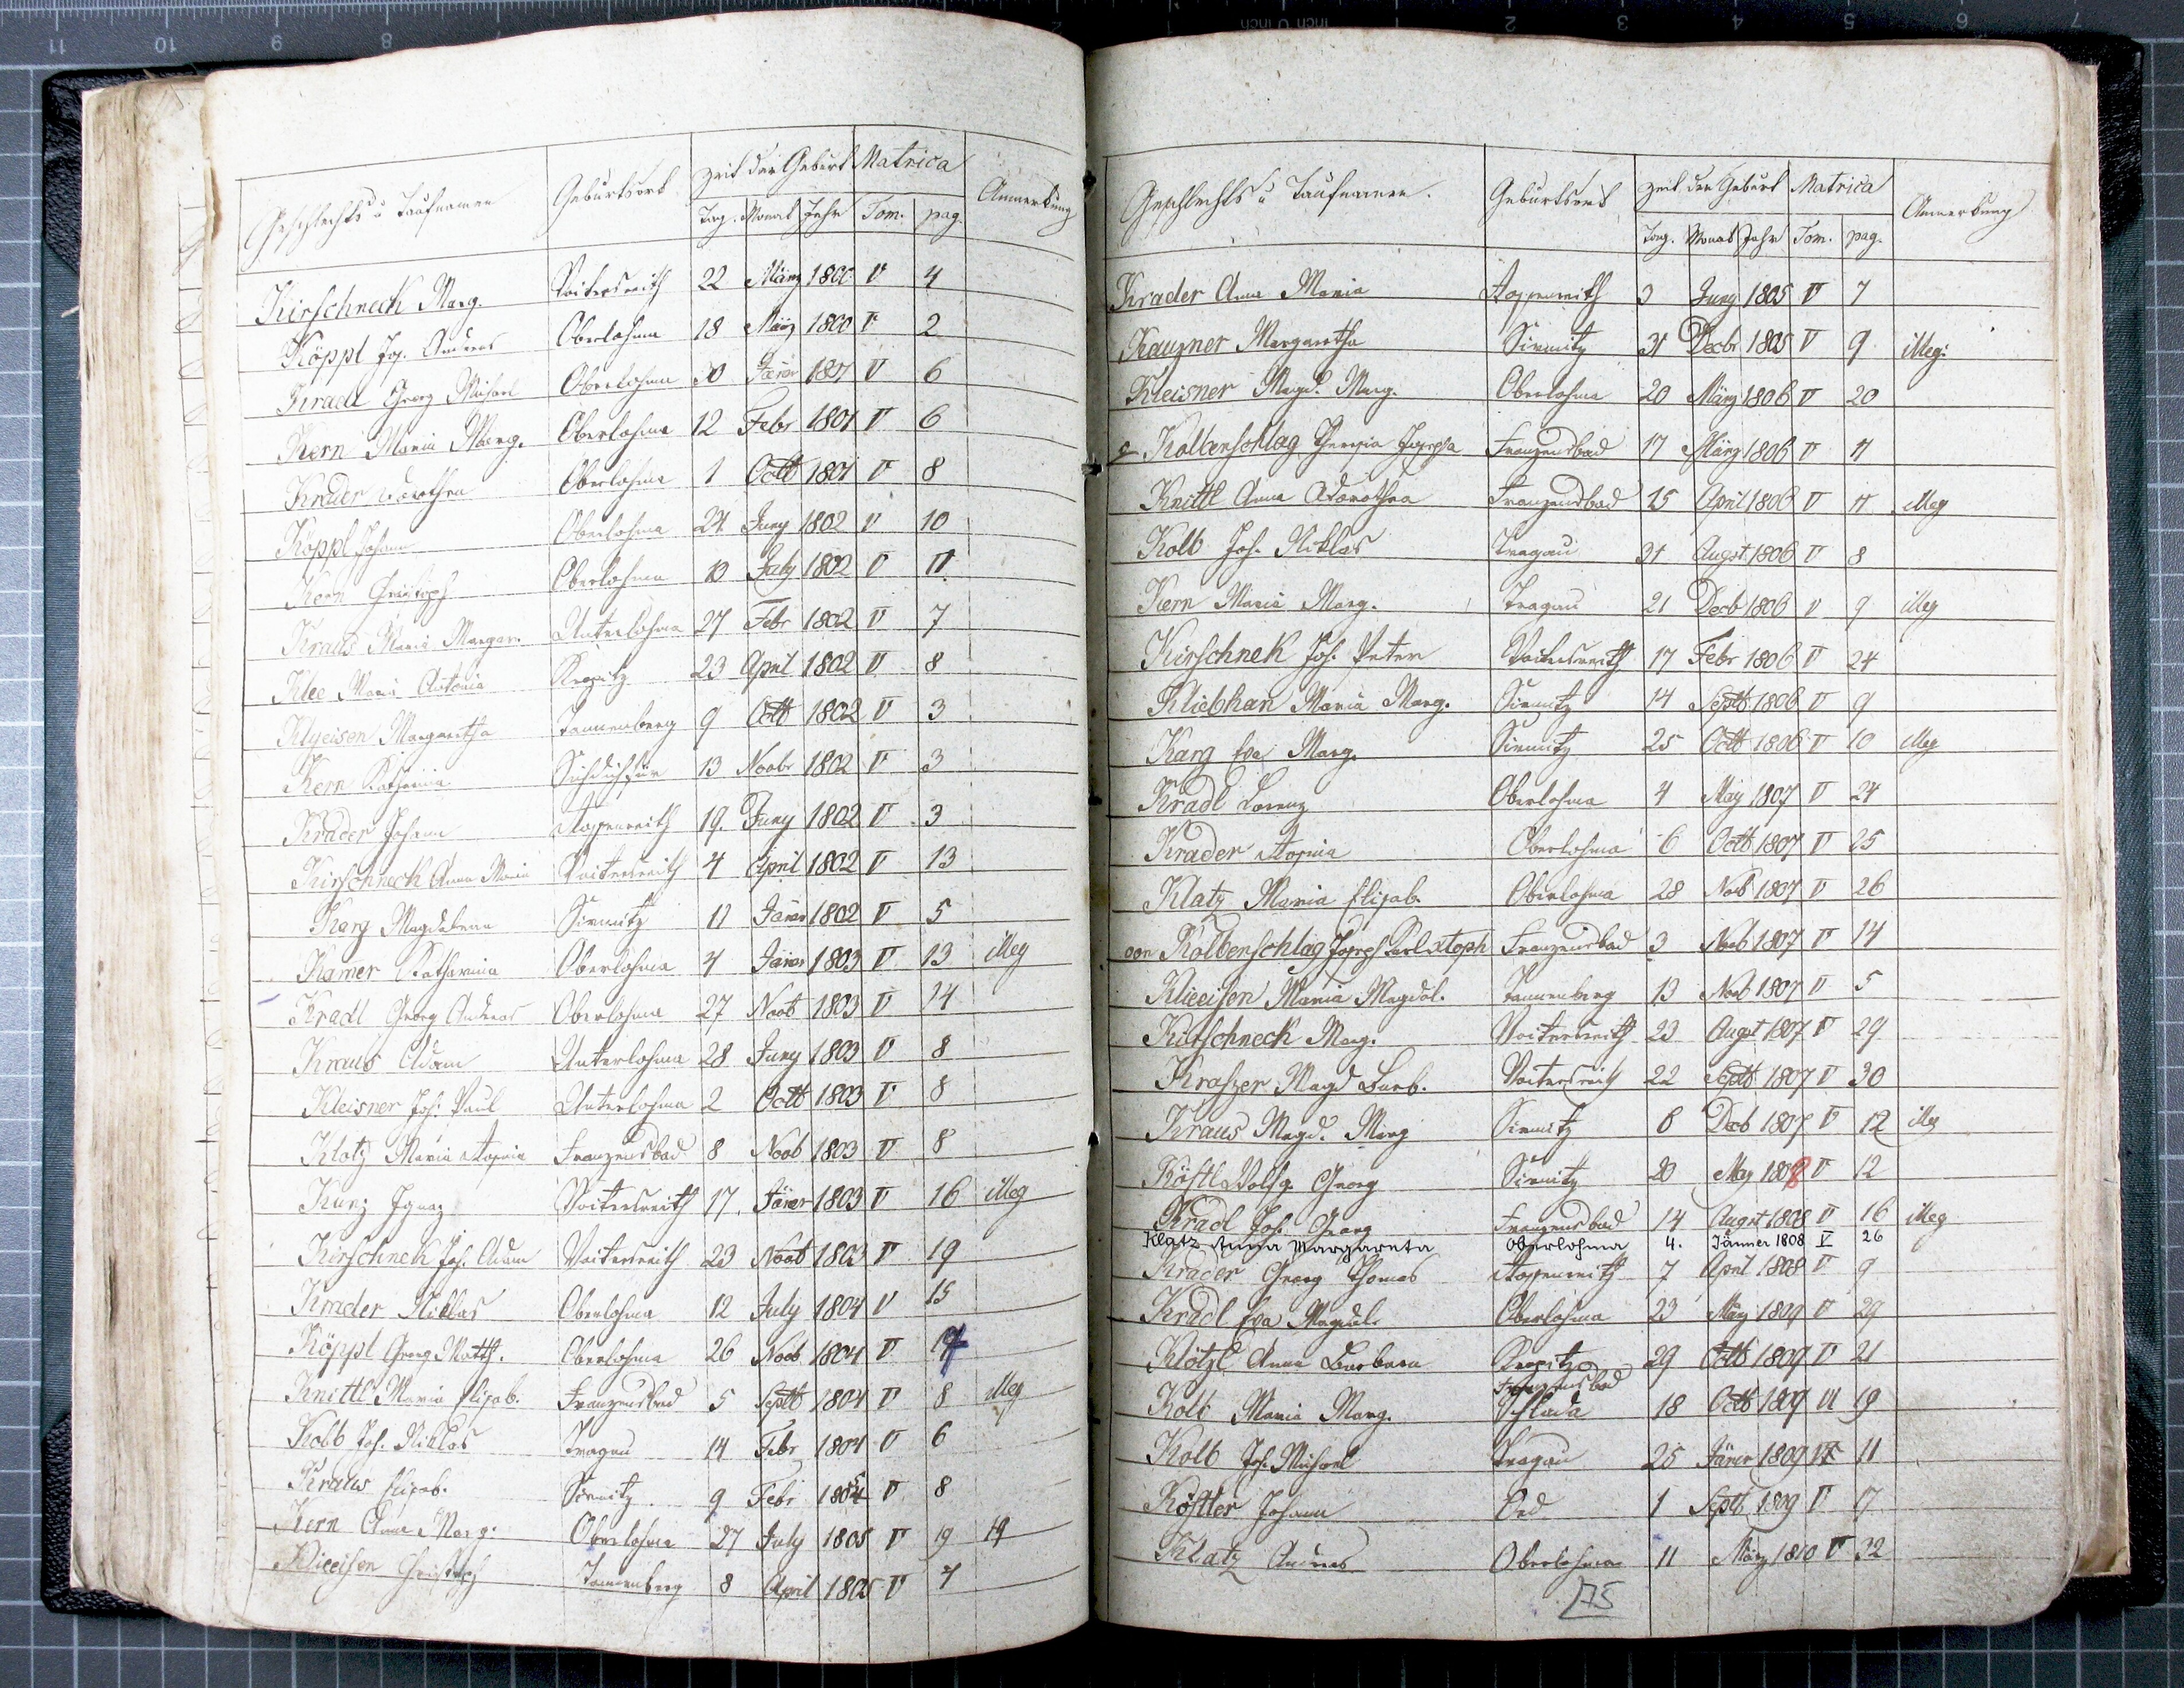 Geschlechts u Taufnamen Geburtsort Zeit der Geburt Matrica Anmerkung
Tag. Monat Jahr Tom. pag.
Kirschneck Marg. Voitersreith 22 März 1800 V 4
Köppl Joh. Andreas Oberlohma 18 März 1800 V 2
Kradl Georg Michael Oberlohma 30 Jäner 1801 V 6
Kern Maria Marg. Oberlohma 12 Febr 1801 V 6
Krader Dorothea Oberlohma 1 Octb 1801 V 8
Koppl Johann Oberlohma 24 Juny 1802 V 10
Kern Christoph Oberlohma 10 July 1802 V 11
Kraus Maria Margar. Unterlohma 27 Febr 1802 V 7
Klee Maria Antonia Kropitz 23 April 1802 V 8
Klyeisen Margaretha Tannenberg 9 Octb 1802 V 3
Kern Katharina Sichdichfür 13 Novbr 1802 V 3
Krader Johann Stoppenreith 19. Juny 1802 V 3
Kirschneck Anna Maria Voitersreith 4 April 1802 V 13
Karg Magdalena Sirmitz 11 Jäner 1802 V 5
Kamer Katharina Oberlohma 4 Jäner 1803 V 13 illeg
Kradl Georg Andreas Oberlohma 27 Novb 1803 V 14
Kraus Adam Unterlohma 28 Juny 1803 V 8
Kleisner Joh. Paul Unterlohma 2 Octb 1803 V 8
Klotz Maria Sophia Franzensbad 8 Novb 1803 V 8
Kunz Ignaz Voitersreith 17. Jäner 1803 V 16 illeg
Kirschnek Joh. Adam Voitersreith 23 Novb 1803 V 19
Krader Niklas Oberlohma 12 July 1804 V 15
Köppl Georg Matth. Oberlohma 26 Novb 1804 V
Knittl Maria Elisab. Franzensbad 5 Septb 1804 V 8 illeg
Kolb Joh. Niklas Tragau 14 Febr 1804 V 6
Kraus Elisab. Sirmitz 9 Febr V 8
Kern Anna Marg. Oberlohma 27 July 1805 V 19 19
Klieeisen Christoph Tannenberg 8 April 1805 V 4
Geschlechts u Taufnamen. Geburtsort Zeit der Geburt Matrica Anmerkung
Tag. Monat Jahr Tom. pag.
Krader Anna Maria Stoppenreith 3 Juny 1805 V 7
Kauzner Margaretha Sirmitz 31 Decbr 1805 V 9 illeg:
Kleisner Magd. Marg. Oberlohma 20 März 1806 V 20
Kolbenschlag Theresia Josepha Franzensbad 17 März 1806 V 11
Knittl Anna Dorothea Franzensbad 15 April 1806 V 11 illeg
Kolb Joh. Niklas Tragau 31 Augst 1806 V 8
Kern Maria Marg. Tragau 21 Decb 1806 V 9 illeg
Kirschnek Joh. Peter Voitersreith 17 Febr 1806 V 24
Kliebhan Maria Marg. Sirmitz 14 Septb 1806 V 9
Karg Eva Marg. Sirmitz 25 Octb 1806 V 10 illeg
Kradl Lorenz Oberlohma 4 May 1807 V 24
Krader Sophia Oberlohma 6 Octb 1807 V 25
Klatz Maria Elisab. Oberlohma 28 Novb 1807 V 26
von Kolbenschlag Joseph Karl Xtoph Franzensbad 3 Novb 1807 V 14
Klieeisen Maria Magdal. Tannenberg 13 Novb 1807 V 5
Kirschneck Marg. Voitersreith 23 Augst 1807 V 29
Kraszer Magd Barb. Voitersreith 22 Septb 1807 V 30
Kraus Magd. Marg Sirmitz 6 Decb 1807 V 12 illeg
Köstl Wolfg. Georg Sirmitz 20 May 1808 V 12
Kradl Joh. Georg Franzensbad 14 Augst 1808 V 16 illeg
Klatz Anna Margareta Oberlohma 4. Jänner 1808 V 26
Krader Georg Thomas Stoppenreith 7 April 1808 V 9
Kradl Eva Magdal. Oberlohma 23 März 1809 V 29
Klötzl Anna Barbara Kropitz 29 Octb 1809 V 21
Franzensbad
Kolb Maria Marg. Schlada 18 Octb 1809 VI 19
Kolb Joh. Michael Tragau 25 Jäner 1809 V 11
Köstler Johann Oed 1 Septb 1809 V 17
Klatz Andreas Oberlohma 11 März 1810 V 32
175